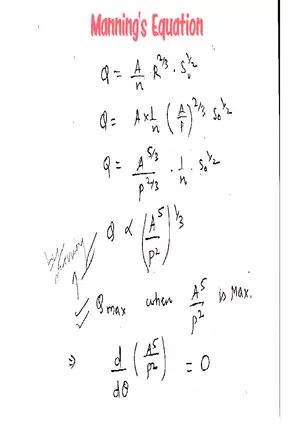 Manning's Equation
Q = A/n R^2/3 . S₀^1/2
Q = A × 1/n (A/P)^2/3 S₀^1/2
Q = A^5/3 / P^2/3 . 1/n . S₀^1/2
Q ∝ (A^5/P^2)^1/3
by Manning
Qmax when A^5/P^2 is Max.
⇒ d/dθ (A^5/P^2) = 0